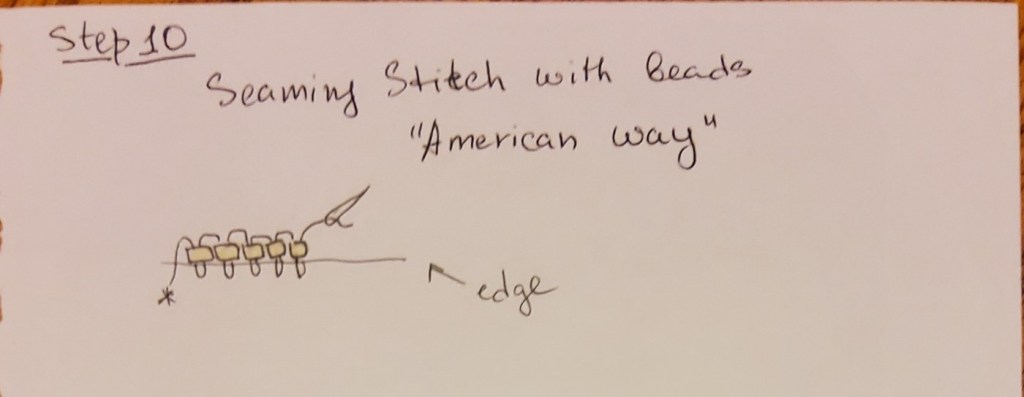 Step 10
Seaming Stitch with Beads
"American way"
edge